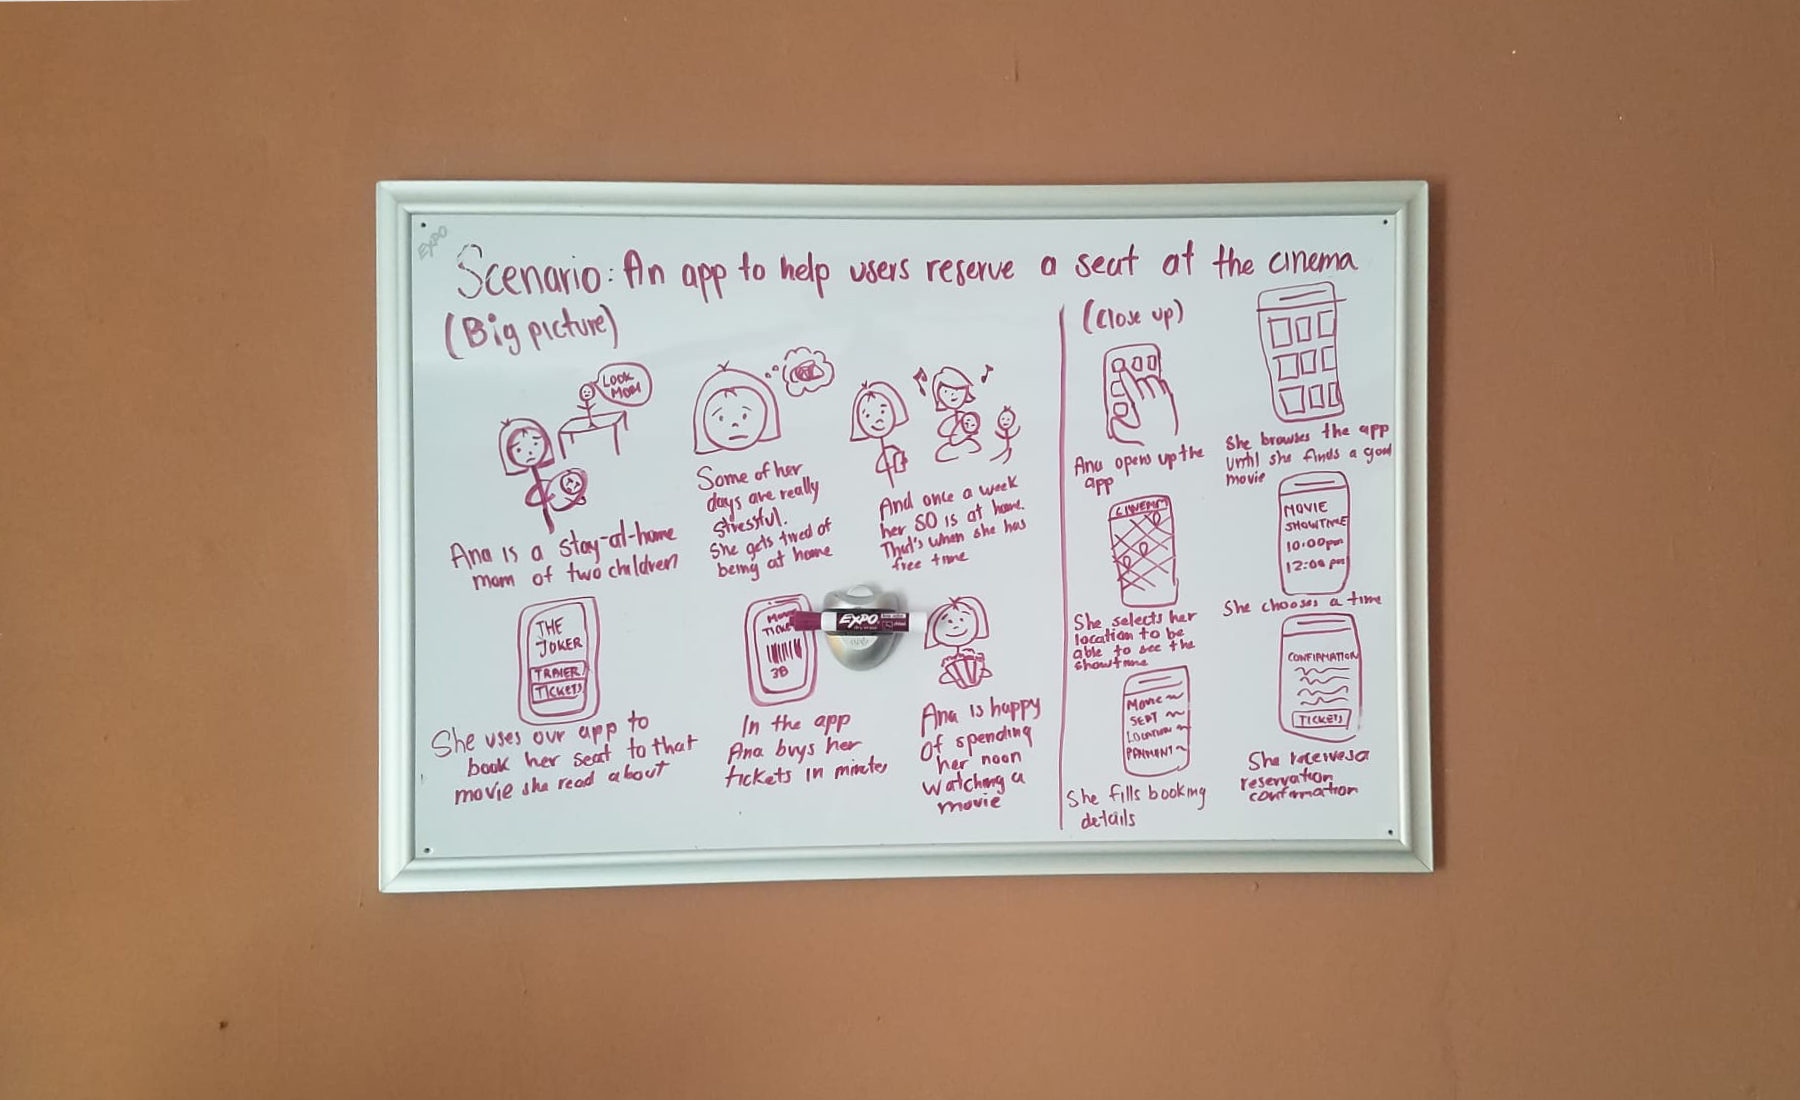 EXPO
Scenario: An app to help users reserve a seat at the cinema
(Big picture)
LOOK
MOM
Ana is a stay-at-home
mom of two children
Some of her
days are really
stressful.
She gets tired of
being at home
And once a week
her SO is at home.
That's when she has
free time
THE
JOKER
TRAILER
TICKETS
She uses our app to
book her seat to that
movie she read about
38
In the app
Ana buys her
tickets in minutes
EXPO
Ana is happy
of spending
her noon
watching a
movie
(Close up)
Ana opens up the
app
She browses the app
until she finds a good
movie
CINEMA
She selects her
location to be
able to see the
showtime
MOVIE
SHOWTIME
10:00pm
12:00 pm
She chooses a time
MOVIE
SEAT
LOCATION
PAYMENT
She fills booking
details
CONFIRMATION
TICKETS
She receives a
reservation
confirmation